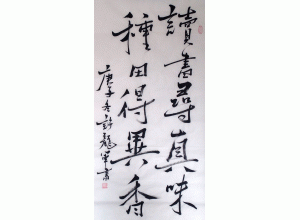 讀書尋真味
種田得異香
庚子冬許龍軍書